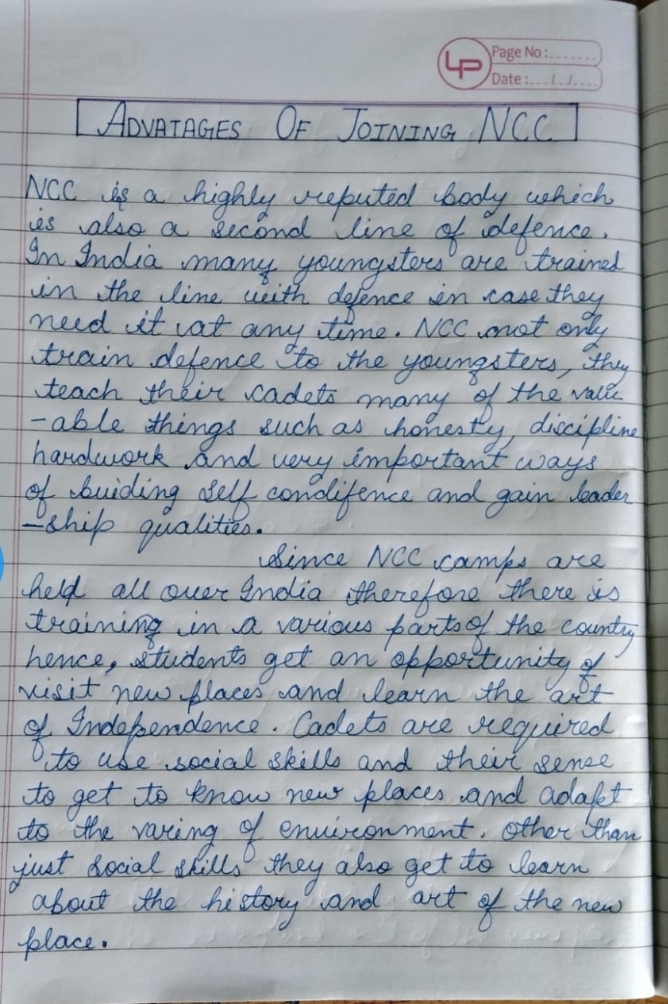 LP
Page No :.......
Date :.... / ../....
ADVATAGES OF JOINING NCC
NCC is a highly reputed body which
is also a second line of defence.
In India many youngsters are trained
in the line with defence in case they
need it at any time. NCC not only
train defence to the youngsters, they
teach their cadets many of the valu
-able things such as honesty, discipline
hardwork and very important ways
of buiding self condifence and gain leader
-ship qualities.
Since NCC camps are
held all over India therefore there is
training in a various parts of the country
hence, students get an opportunity of
visit new places and learn the art
of Independence. Cadets are required
to use social skills and their sense
to get to know new places and adapt
to the varing of environment. Other than
just social skills they also get to learn
about the history and art of the new
place.